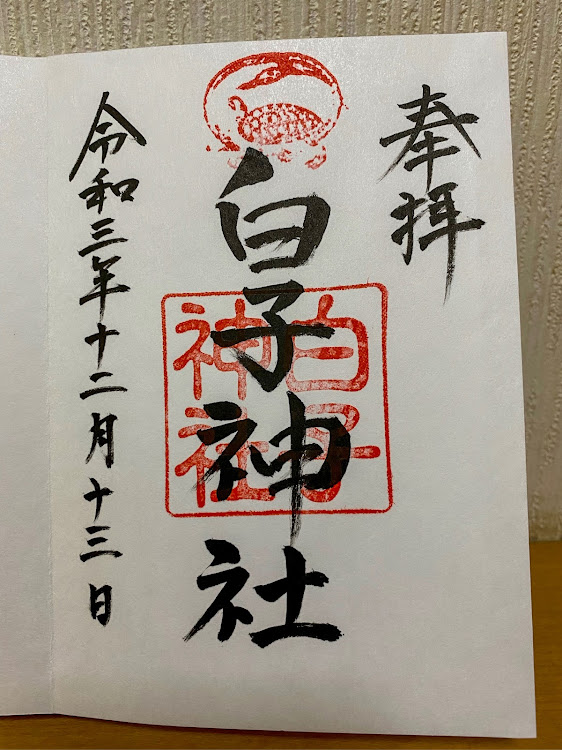 奉拝
白子神社
白子
神社
令和三年十二月十三日